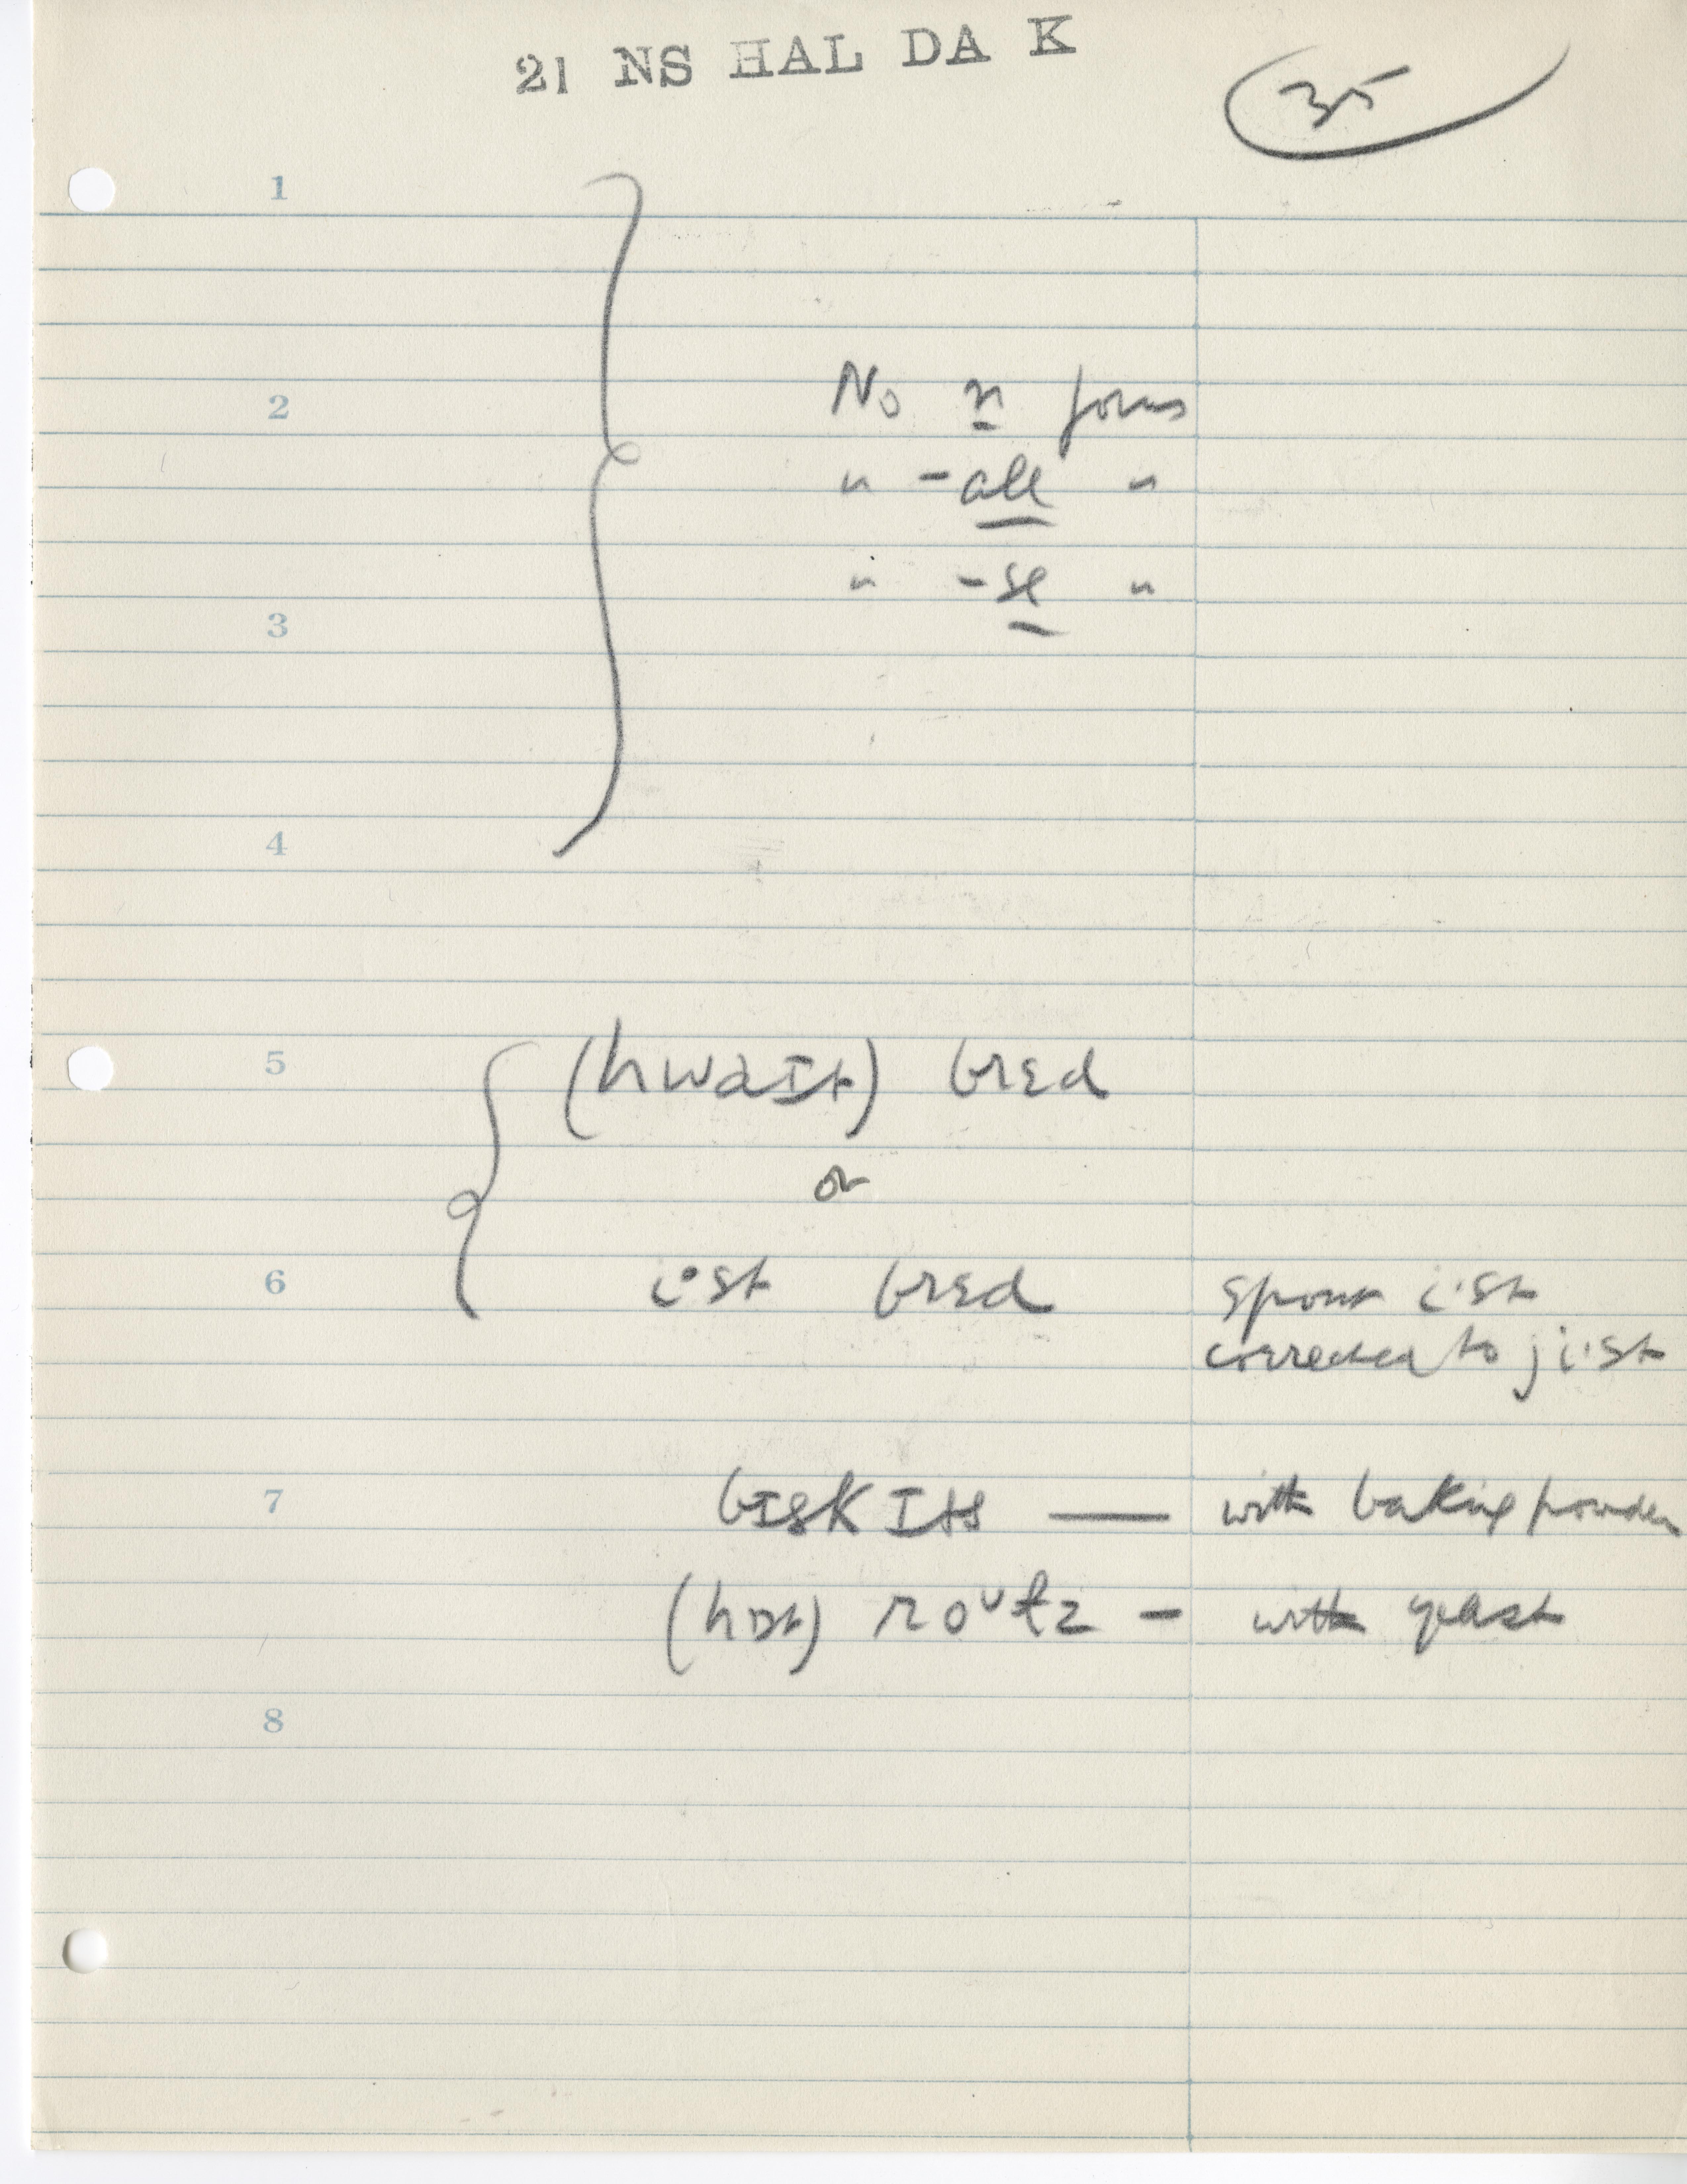 21 NS HAL DA K
35
1
2
No n forms
" -all "
" -se "
3
4
5
(hwaɪt) brɛd
or
6
i·st brɛd
spont i·st
corrected to ji·st
7
bɪskɪts — with baking powder
(hɒt) roᵘɫz - with yeast
8